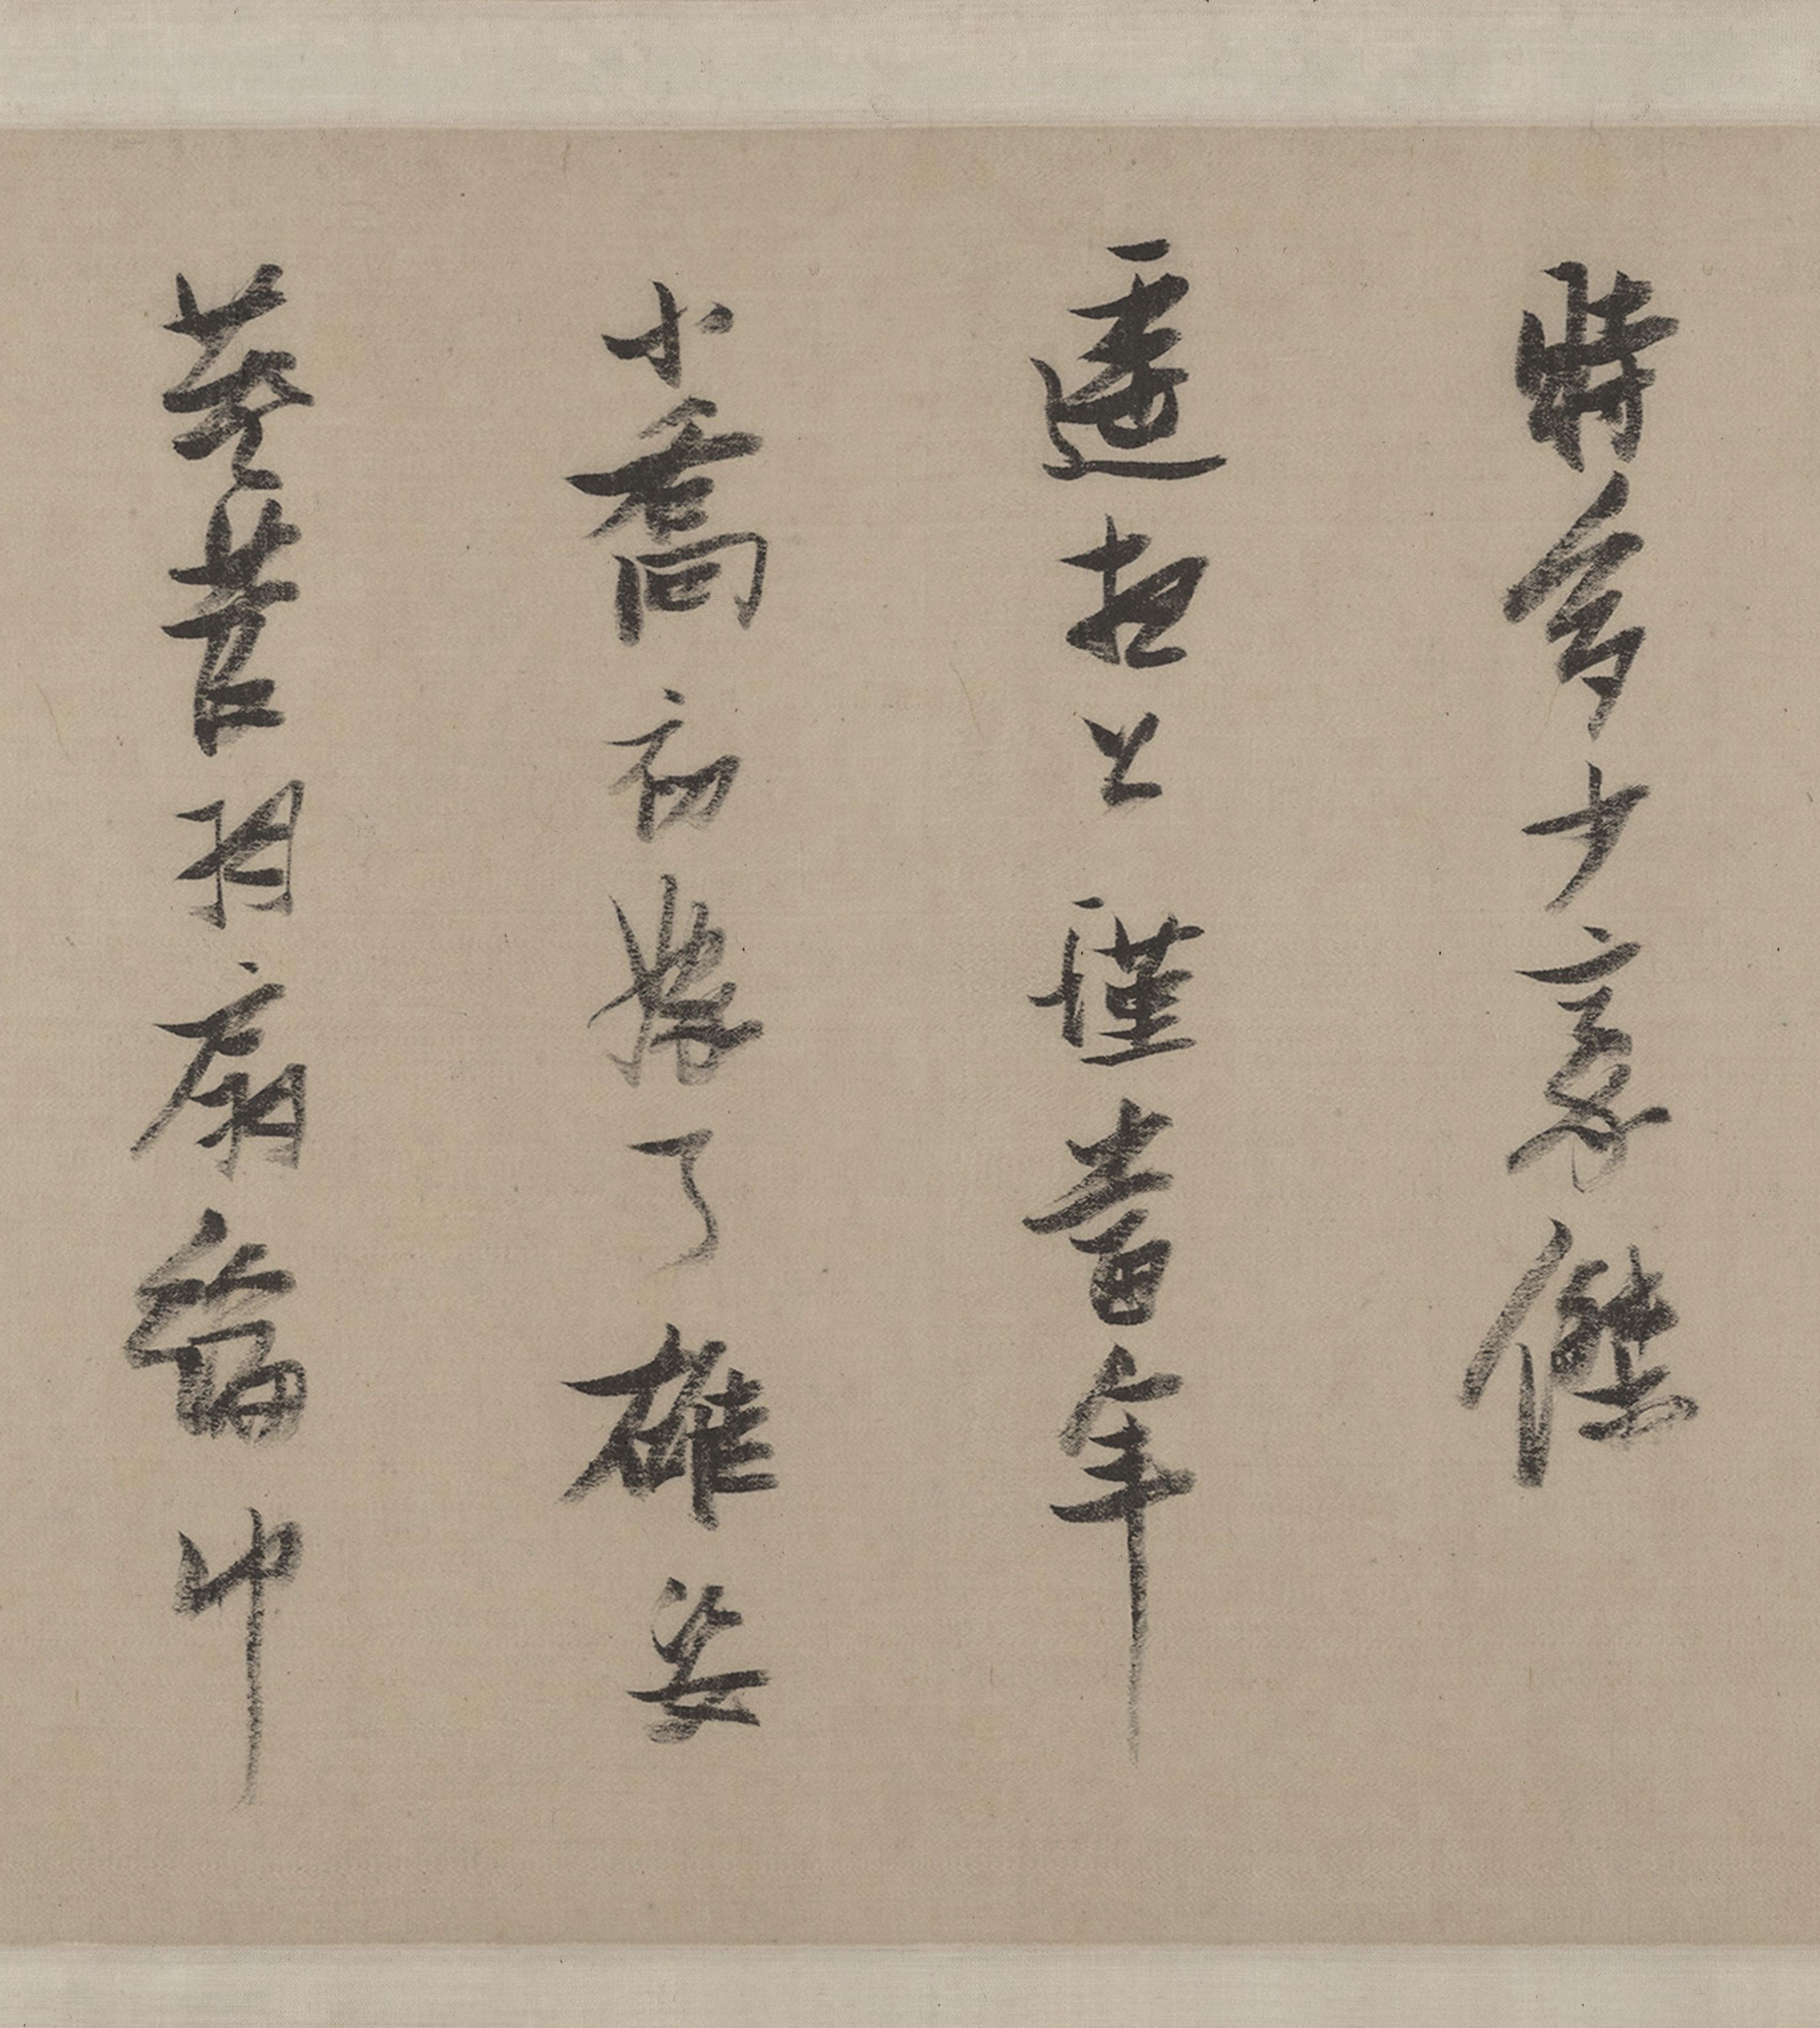 時多少豪傑
遙想公瑾當年
小喬初嫁了雄姿
英發羽扇綸巾